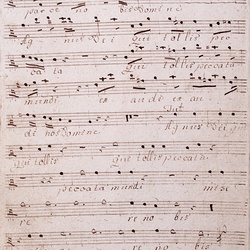 parce nobis Domine
Agnus Dei qui tollis pec
cata qui tollis peccata
mundi exaudi exau
di nos Domine Agnus Dei
qui tollis qui tollis peccata
peccata mundi mise
re re nobis
re re nobis